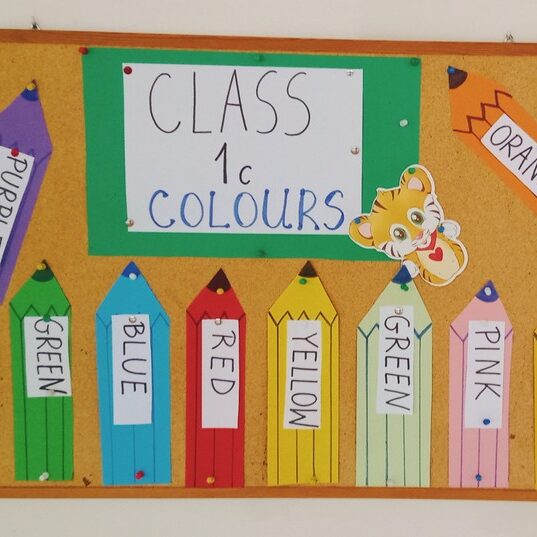 CLASS
1c
COLOURS
PURPLE
ORAN
GREEN
BLUE
RED
YELLOW
GREEN
PINK